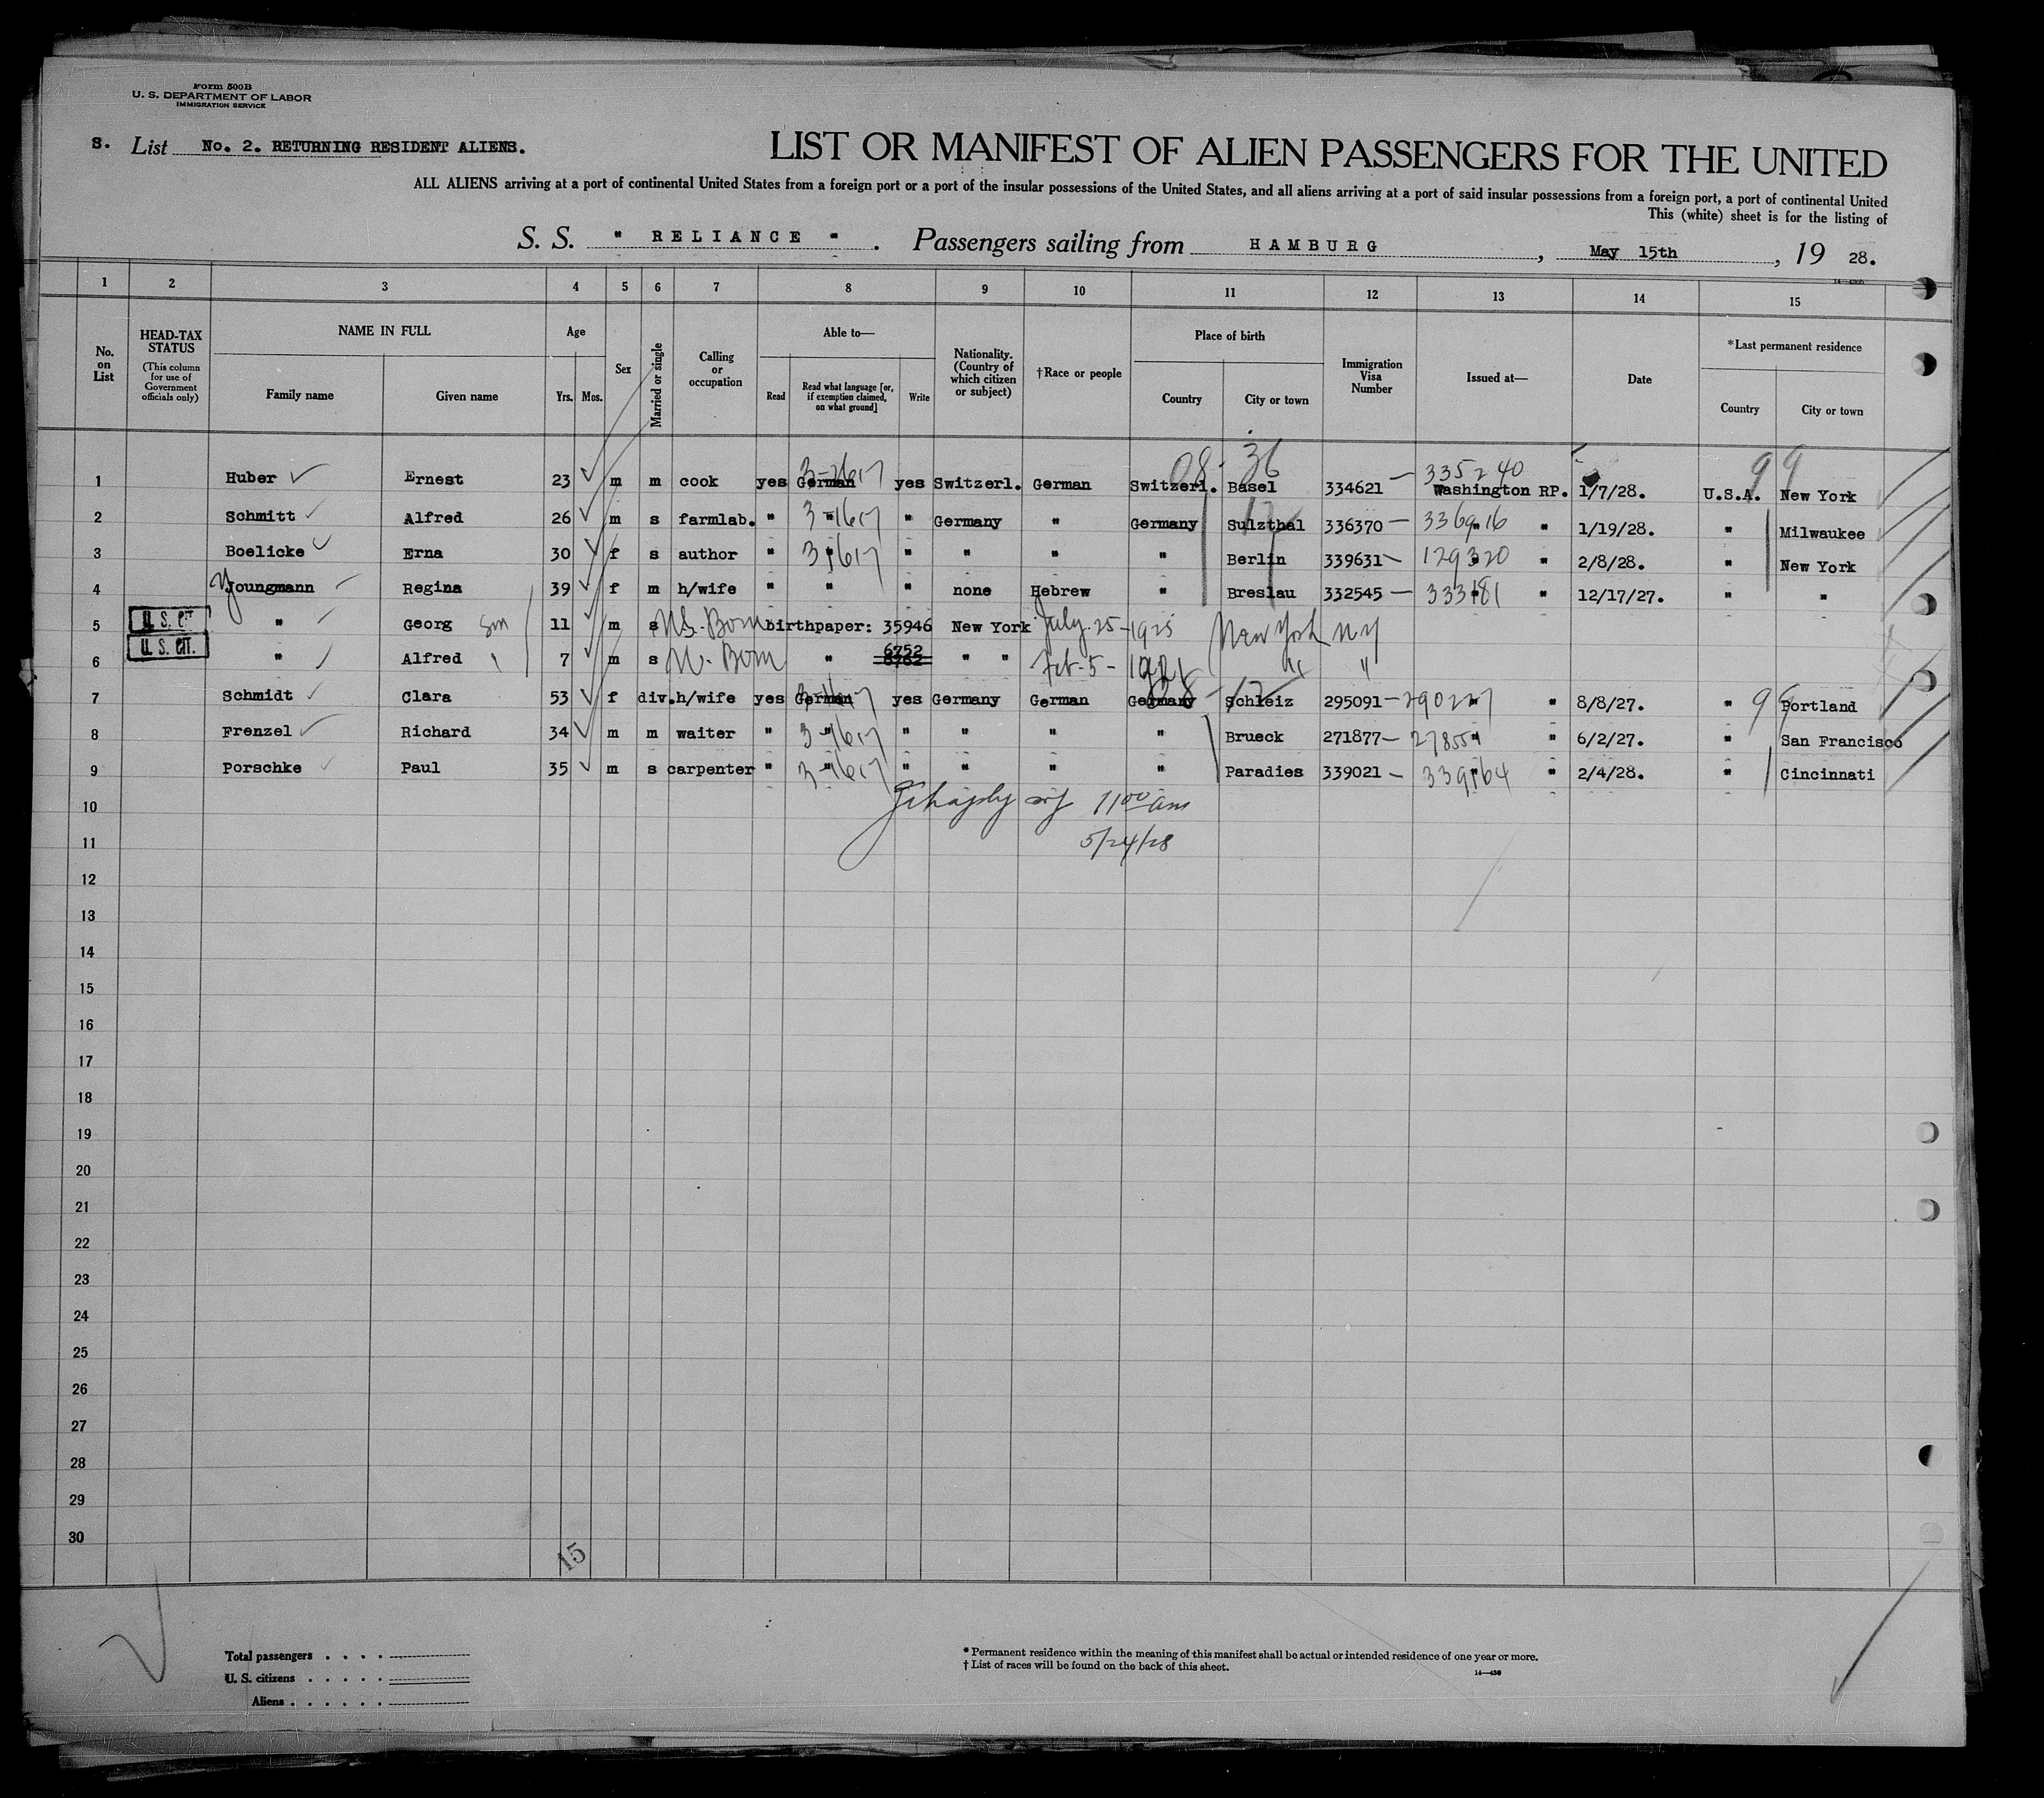 Form 500B
U. S. DEPARTMENT OF LABOR
IMMIGRATION SERVICE
S. List No. 2. RETURNING RESIDENT ALIENS.
LIST OR MANIFEST OF ALIEN PASSENGERS FOR THE UNITED
ALL ALIENS arriving at a port of continental United States from a foreign port or a port of the insular possessions of the United States, and all aliens arriving at a port of said insular possessions from a foreign port, a port of continental United
This (white) sheet is for the listing of
S. S. " RELIANCE ". Passengers sailing from HAMBURG, May 15th, 19 28.
1 2 3 4 5 6 7 8 9 10 11 12 13 14 15
No. on List
HEAD-TAX STATUS (This column for use of Government officials only)
NAME IN FULL Family name Given name
Age Yrs. Mos.
Sex
Married or single
Calling or occupation
Able to— Read Read what language [or, if exemption claimed, on what ground] Write
Nationality. (Country of which citizen or subject)
†Race or people
Place of birth Country City or town
Immigration Visa Number
Issued at—
Date
*Last permanent residence Country City or town
08- 36 99
1 Huber Ernest 23 m m cook yes German yes Switzerl. German Switzerl. Basel 334621 — 335240 Washington RP. 1/7/28. U.S.A. New York
2 Schmitt Alfred 26 m s farmlab. " " " Germany " Germany Sulzthal 336370 — 336916 " 1/19/28. " Milwaukee
3 Boelicke Erna 30 f s author " " " " " " Berlin 339631 — 129320 " 2/8/28. " New York
4 Youngmann Regina 39 f m h/wife " " " none Hebrew " Breslau 332545 — 333181 " 12/17/27. " "
5 U. S. CIT. " Georg Son 11 m s U.S. Born birthpaper: 35946 New York July-25-1925 New York NY
6 U. S. CIT. " Alfred 7 m s Born " 6752 6762 " " Feb-5-1921 " "
7 Schmidt Clara 53 f div. h/wife yes German yes Germany German Germany Schleiz 295091 — 290227 " 8/8/27. " Portland
8 Frenzel Richard 34 m m waiter " " " " " " Brueck 271877 — " 6/2/27. " San Francisco
9 Porschke Paul 35 m s carpenter " " " " " " Paradies 339021 — 339164 " 2/4/28. " Cincinnati
10 11 00 am
11 5/24/28
12
13
14
15
16
17
18
19
20
21
22
23
24
25
26
27
28
29
30
15
Total passengers . . . .
U. S. citizens . . . . .
Aliens . . . . . .
* Permanent residence within the meaning of this manifest shall be actual or intended residence of one year or more.
† List of races will be found on the back of this sheet.
14—430